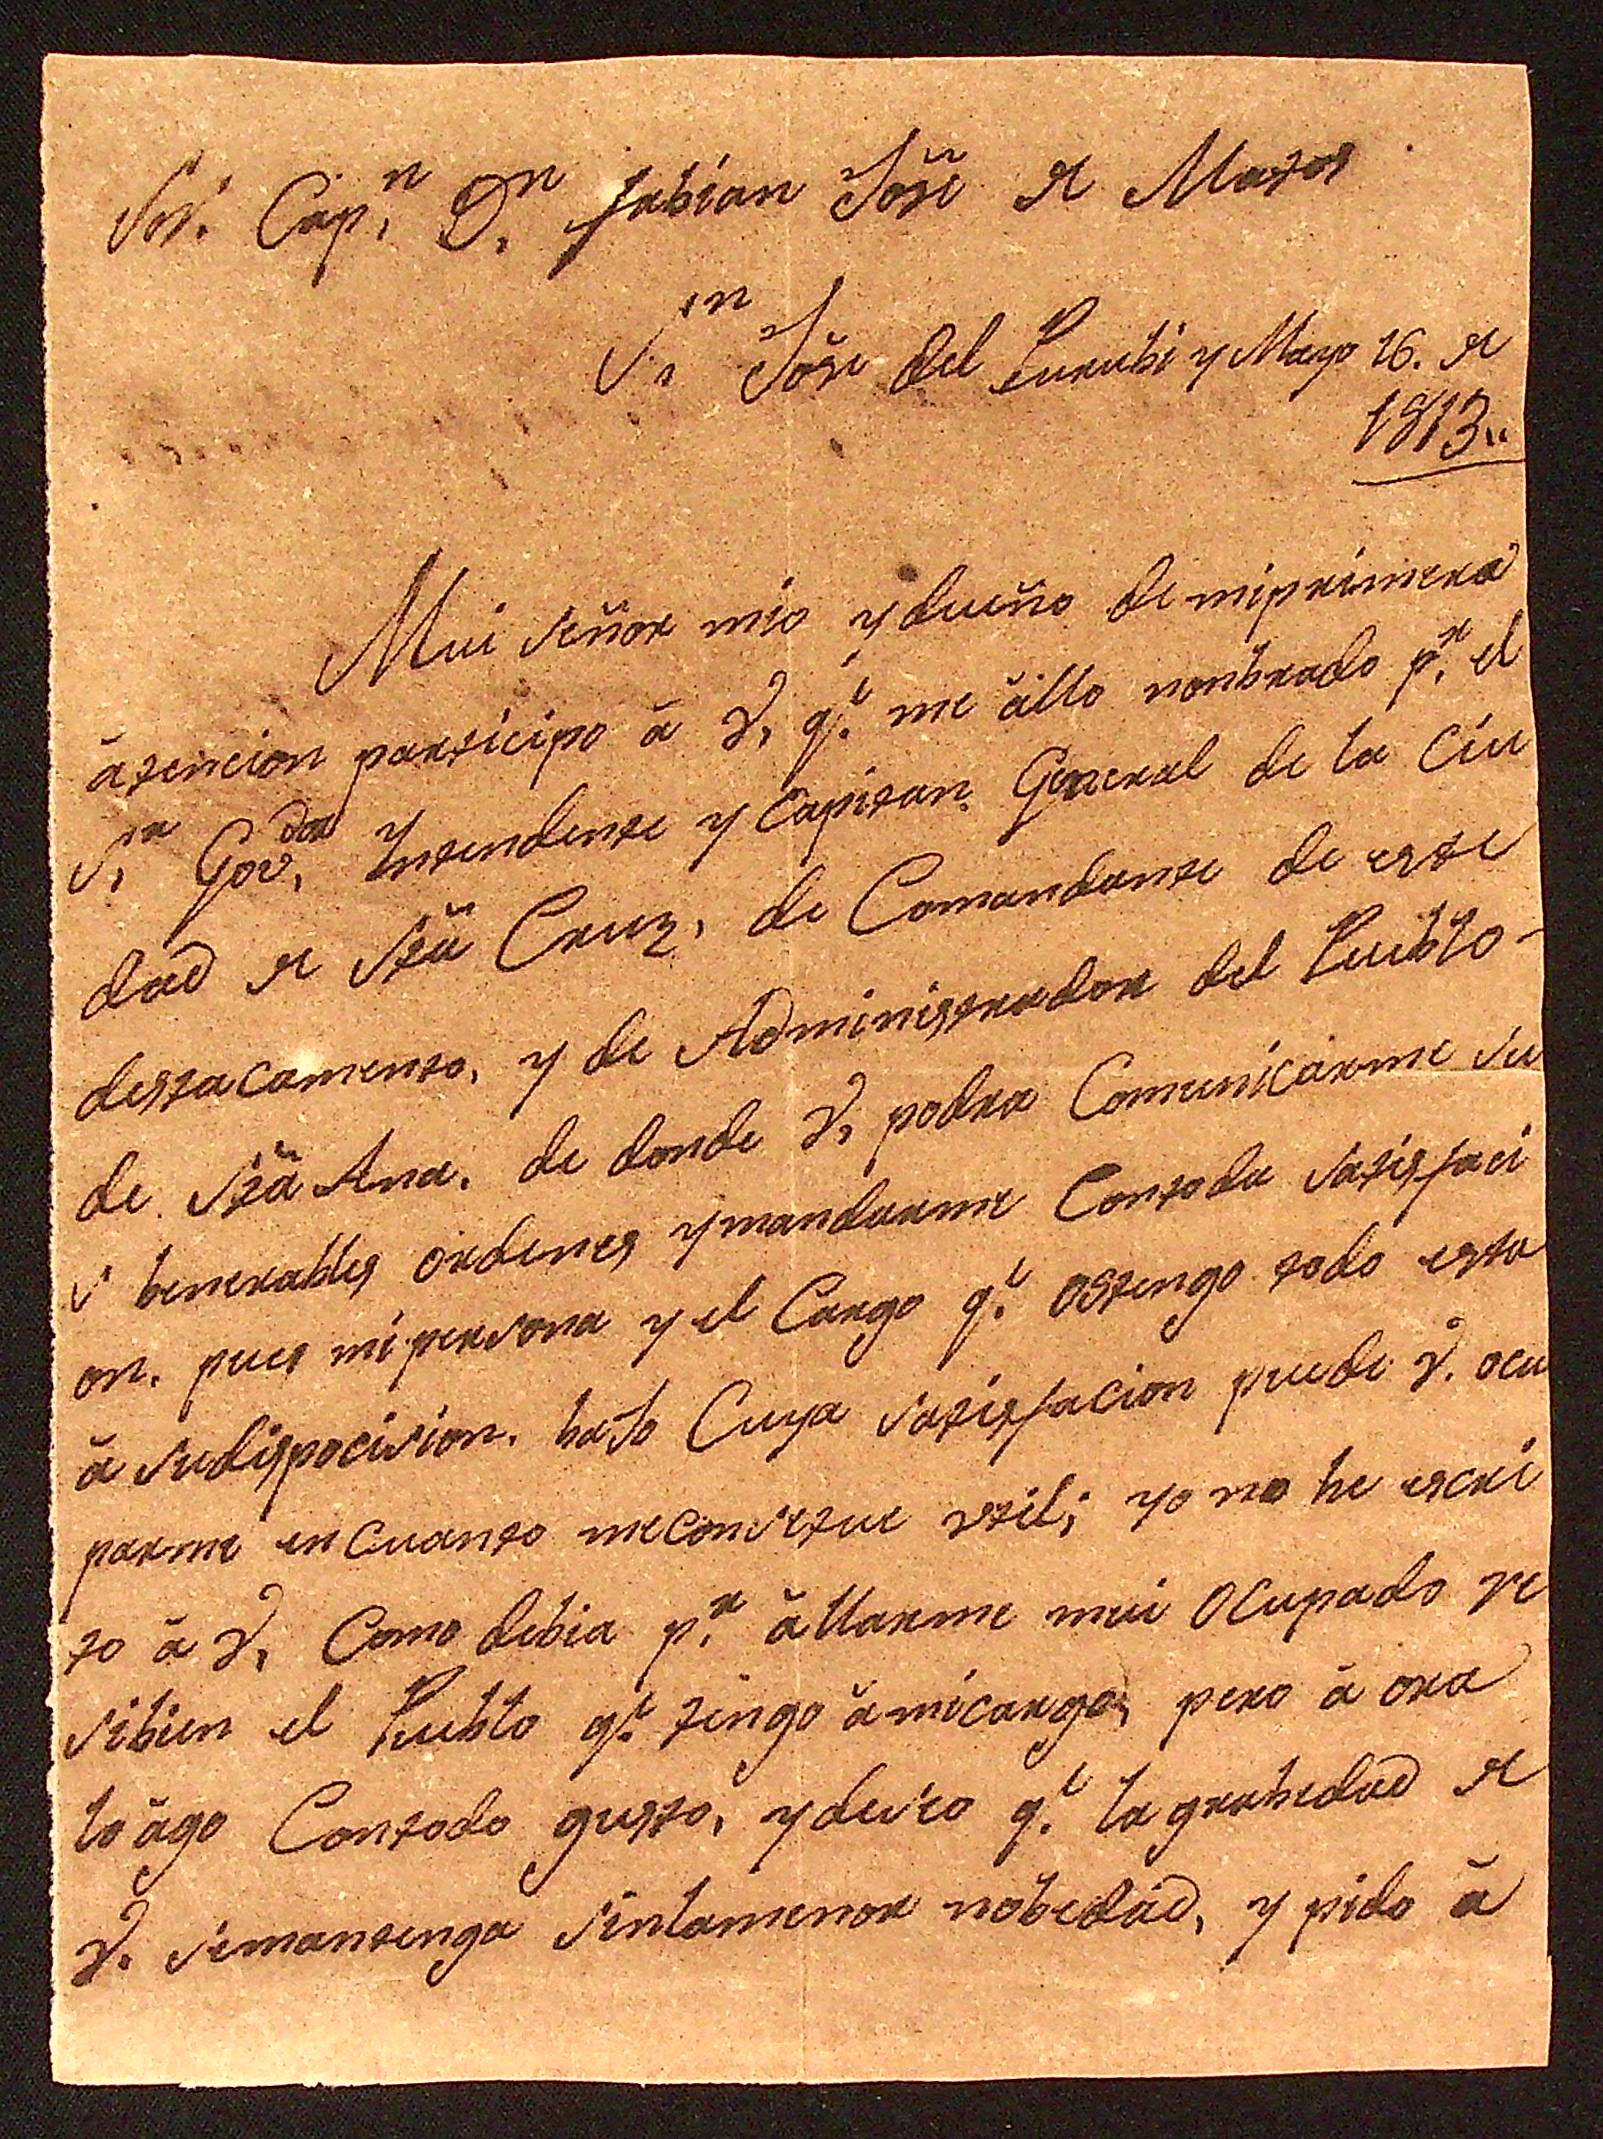 Sor. Capn. Dn. fabian Jose de Matos
Sn. Jose del Purubi y Mayo 26. de
1813..
Mui señor mio y dueño de mi primera
ătencion participo ă V, qe. me ăllo nonbrado pr. el
Sr. Govdor, Yntendente y Capitan General de la Ciu
dad de Sta Cruz, de Comandante de este
destacamento, y de Administrador del Pueblo
de Sta Ana. de donde V, podra Comunicarme su
s benerables ordenes y mandarme Contoda satisfaci
on. pues mi persona y el Cargo qe. ostengo todo esta
ă sudispocision. bajo Cuya satisfacion puede V. ocu
parme en cuanto me considere util; yo no he escri
to ă V, Como debia pr. ăllarme mui ocupado re
sibien el Pueblo qe. tengo ă mi cargo, pero ă ora
lo ăgo Contodo gusto, y deseo qe. la grabedad de
V. semantenga sinlamenor nobedad, y pido ă